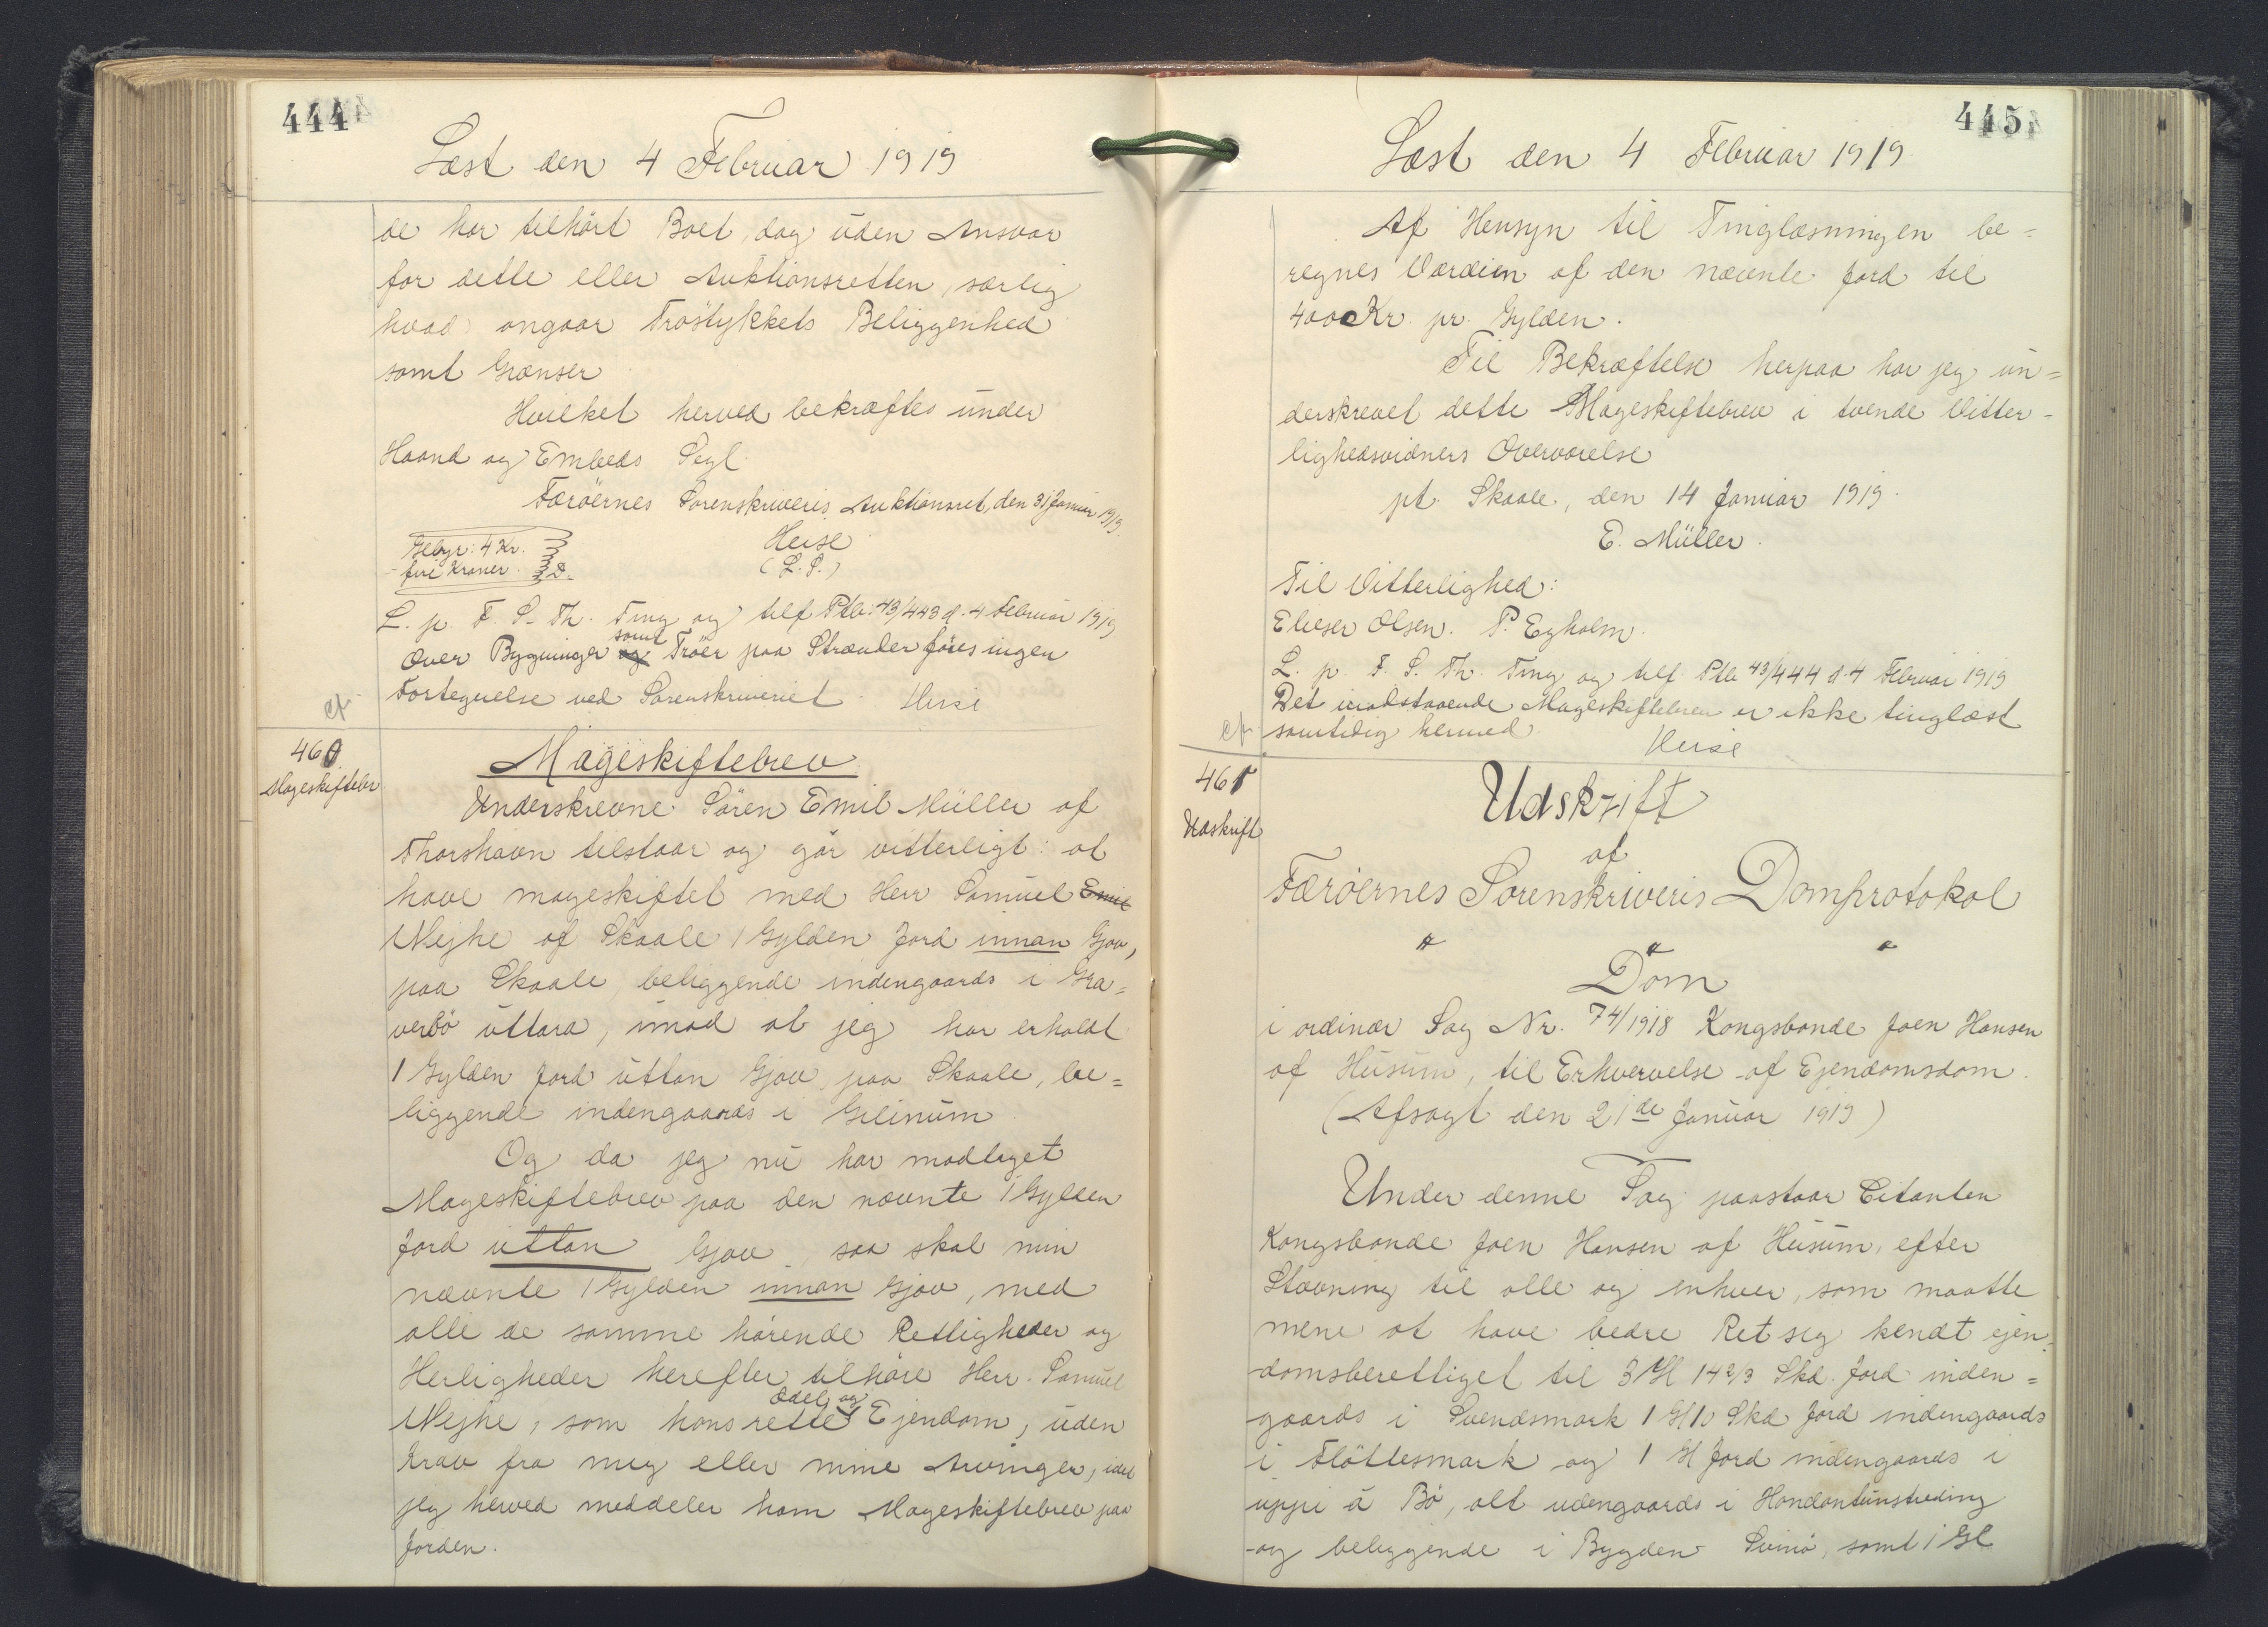 444
Læst den 4 Februar 1919
de har tilhört Boet, dog uden Ansvar
for dette eller Auktionsretten, særlig
hvad angaar Tröstykkets Beliggenhed
samt Grænser
Hvilket herved bekræftes under
Haand og Embeds Segl.
Færöernes Sorenskriveris Auktionsret, den 31 Januar 1919.
Gebyr: 4 Kr.
fire Kroner. D.
Heise
(L. S.)
L. p. F. S. Th. Ting og tilf Ptk: 43/443 d. 4 Februar 1919
Over Bygninger og samt Tröer paa Strænder föres ingen
Fortegnelse ved Sorenskriveriet Heise
cf.
460
Mageskiftebr
Mageskiftebrev
Underskrevne Sören Emil Müller af
Thorshavn tilstaar og gör vitterligt: at
have mageskiftet med Herr Samuel Emil
Nejhe af Skaale 1 Gylden Jord innan Gjov,
paa Skaale, beliggende indengaards i Gra=
verbö uttara, imod at jeg har erholdt
1 Gylden Jord uttan Gjov, paa Skaale, be=
liggende indengaards i Gilinum
Og da jeg nu har modtaget
Mageskiftebrev paa den nævnte 1 Gylden
Jord uttan Gjov, saa skal min
nævnte 1 Gylden innan Gjov, med
alle de samme hörende Rettigheder og
Herligheder herefter tilhöre Herr. Samuel
Nejhe, som hans rette Odel og Ejendom, uden
Krav fra mig eller mine Arvinger, idet
jeg herved meddeler ham Mageskiftebrev paa
Jorden.
445
Læst den 4 Februar 1919
Af Hensyn til Tinglæsningen be=
regnes Værdien af den nævnte Jord til
400 Kr. pr. Gylden.
Til Bekræftelse herpaa har jeg un=
derskrevet dette Mageskiftebrev i tvende Vitter=
lighedsvidners Overværelse
pt. Skaale, den 14 Januar 1919.
E. Müller.
Til Vitterlighed:
Elieser Olsen. P. Eyholm.
L. p. F. S. Th. Ting og tilf. Ptk 43/444 d. 4 Februar 1919
Det imodstaaende Mageskiftebrev er ikke tinglæst
samtidig hermed.
Heise
cf.
461
Udskrift
Udskrift
af
Færöernes Sorenskriveris Domprotokol
Dom
i ordinær Sag Nr. 74/1918 Kongsbonde Joen Hansen
af Husum, til Erhvervelse af Ejendomsdom.
(Afsagt den 21de Januar 1919)
Under denne Sag paastaar Citanten
Kongsbonde Joen Hansen af Husum, efter
Stævning til alle og enhver, som maatte
mene at have bedre Ret sig kendt ejen=
domsberettiget til 3 Gl 14 2/3 Skd. Jord inden=
gaards i Svendsmark 1 Gl 10 Skd Jord indengaards
i Flöttesmark og 1 Gl Jord indengaards i
uppi á Bö, alt udengaards i Handantunstreding
og beliggende i Bygden Svinö, samt 1 Gl